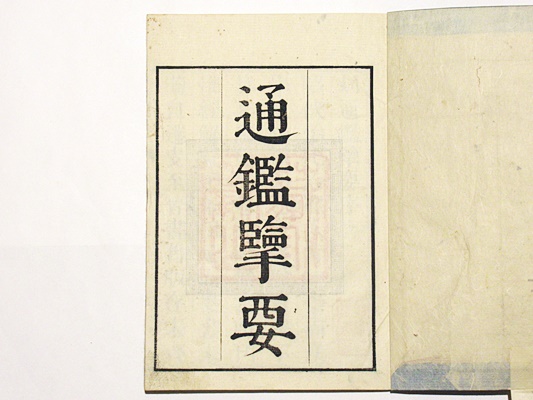 通鑑擥要